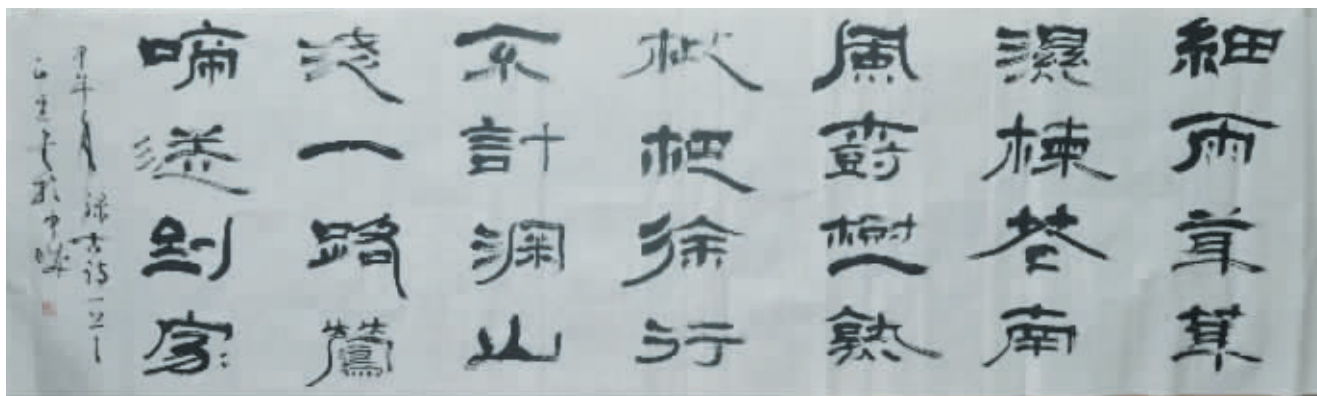 細雨茸茸
濕楝花南
風樹樹熟
枇杷徐行
不計山
淺一路鶯
啼送到家
甲午 錄古詩一首